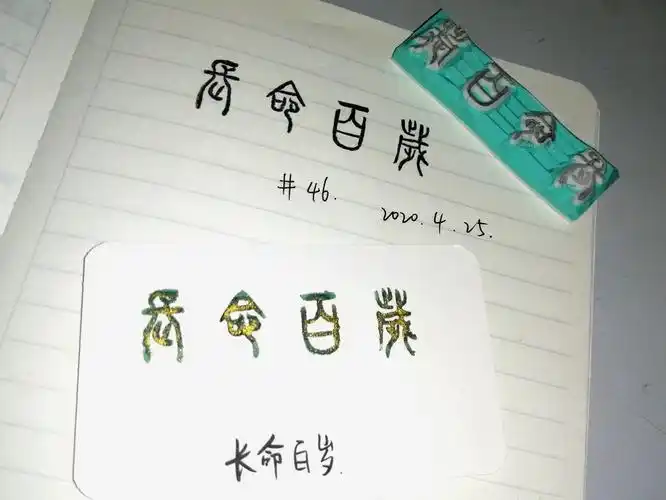 長命百歲
#46.
2020.4.25.
長命百歲
长命百岁.